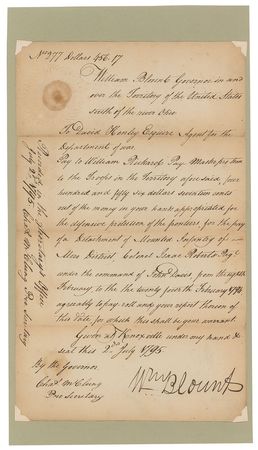 No 277 Dollars 456.17
William Blount Governor in and
over the Territory of the United States
south of the river Ohio
To David Henley Esquire Agent for the
Department of war
Pay to William Rickard Pay Master pro tem
to the Troops in the Territory aforesaid, four
hundred and fifty six dollars seventeen cents
out of the money in your hands appropriated for
the defensive protection of the frontiers, for the pay
of a Detachment of Mounted Infantry of
Mero District Colonel Isaac Roberts Regt
under the command of John Davis from the
February to the twenty fourth February 1795
agreeably to pay roll and your report thereon of
this date, for which this shall be your warrant.
Given at Knoxville under my hand &
seal this 2nd July 1795.
By the Governor
Chas McClung
Pro Secretary
Wm Blount
July 2d 1795
Pro Secretary